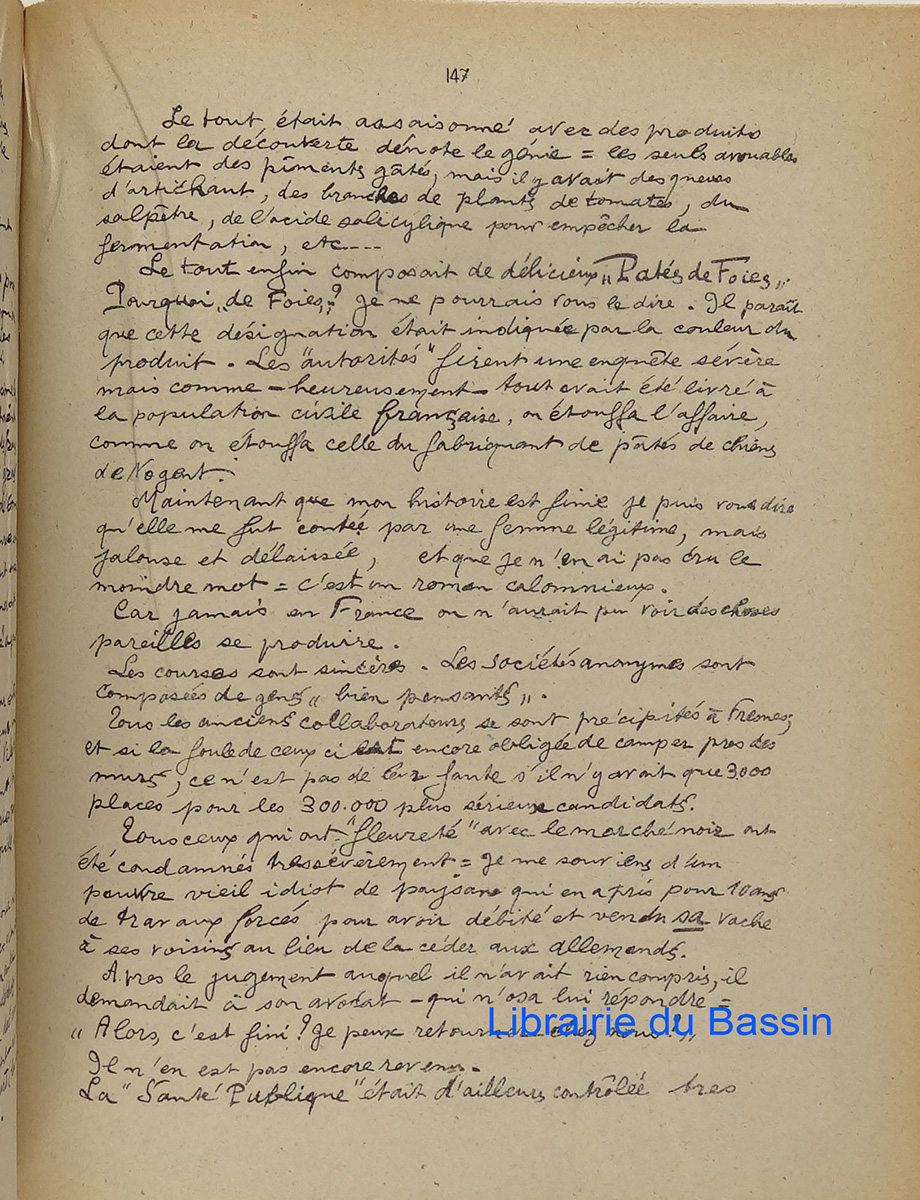 147
Le tout était assaisonné avec des produits
dont la découverte dénote le génie = les seuls avouables
étaient des piments gâtés, mais il y avait des queues
d'artichaut, des branches de plants de tomates, du
salpêtre, de l'acide salicylique pour empêcher la
fermentation, etc....
Le tout enfin composait de délicieux "Patés de Foies"
Pourquoi "de Foies"? Je ne pourrais vous le dire. Il parait
que cette désignation était indiquée par la couleur du
produit. Les "autorités" firent une enquête sévère
mais comme - heureusement - tout avait été livré à
la population civile française, on étouffa l'affaire,
comme on étouffa celle du fabriquant de pâtés de chiens
de Nogent.
Maintenant que mon histoire est finie je puis vous dire
qu'elle me fut contée par une femme légitime, mais
jalouse et délaissée, et que je n'en ai pas cru le
moindre mot = c'est un roman calomnieux.
Car jamais en France on n'aurait pu voir des choses
pareilles se produire.
Les courses sont sincères. Les sociétés anonymes sont
composées de gens "bien pensants".
Tous les anciens collaborateurs se sont précipités à Fresnes,
et si la foule de ceux ci est encore obligée de camper près des
murs, ce n'est pas de leur faute s'il n'y avait que 3000
places pour les 300.000 plus sérieux candidats.
Tous ceux qui ont "fleureté" avec le marché noir ont
été condamnés très sévèrement = Je me souviens d'un
pauvre vieil idiot de paysan qui en a pris pour 10 ans
de travaux forcés pour avoir débité et vendu sa vache
à ses voisins au lieu de la céder aux allemands.
Apres le jugement auquel il n'avait rien compris, il
demandait à son avocat - qui n'osa lui répondre =
"Alors, c'est fini? Je peux retourner chez nous?"
Il n'en est pas encore revenu.
La "Santé Publique" était d'ailleurs contrôlée tres
Librairie du Bassin